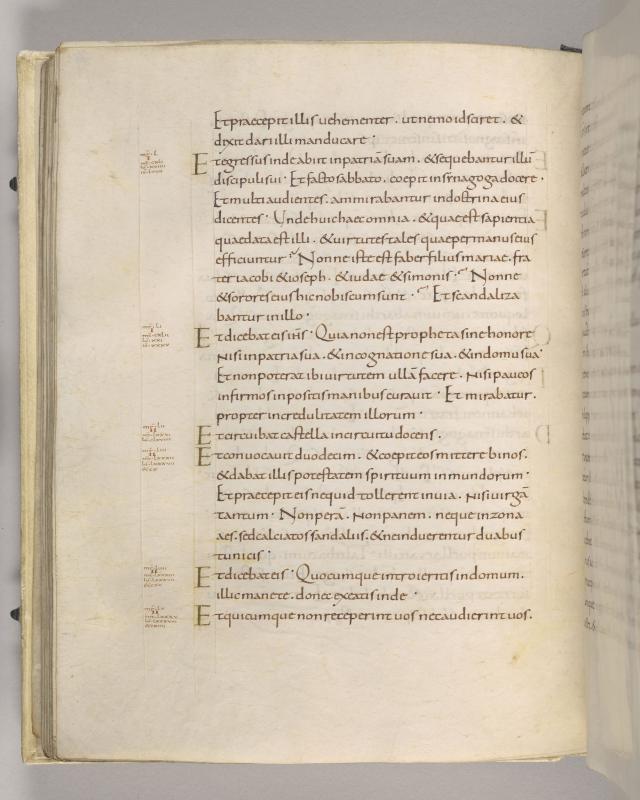 Et praecepit illis uehementer . ut nemo id sciret . &
dixit dari illi manducare .
Et egressus inde abiit in patriā suam . & sequebantur illū
discipuli sui . Et facto sabbato . coepit in synagoga docere .
Et multi audientes . ammirabantur in doctrina eius
dicentes . Unde huic haec omnia . & quae est sapientia
quae data est illi . & uirtutes tales quae per manus eius
efficiuntur . Nonne iste est faber filius mariae . fra
ter iacobi & ioseph . & iudae & simonis . Nonne
& sorores eius hic nobiscum sunt . Et scandaliza
bantur in illo .
Et dicebat eis ihs . Quia non est propheta sine honore
nisi in patria sua . & in cognatione sua . & in domu sua .
Et non poterat ibi uirtutem ullā facere . nisi paucos
infirmos inpositis manibus curauit . Et mirabatur .
propter incredulitatem illorum .
Et circuibat castella in circuitu docens .
Et conuocauit duodecim . & coepit eos mittere binos .
& dabat illis potestatem spirituum inmundorum .
Et praecepit eis ne quid tollerent in uia . nisi uirgā
tantum . Non perā . non panem . neque in zona
aes . sed calciatos sandaliis . & ne induerentur duabus
tunicis .
Et dicebat eis . Quocumque introieritis in domum .
illic manete . donec exeatis inde .
Et quicumque non receperint uos nec audierint uos .